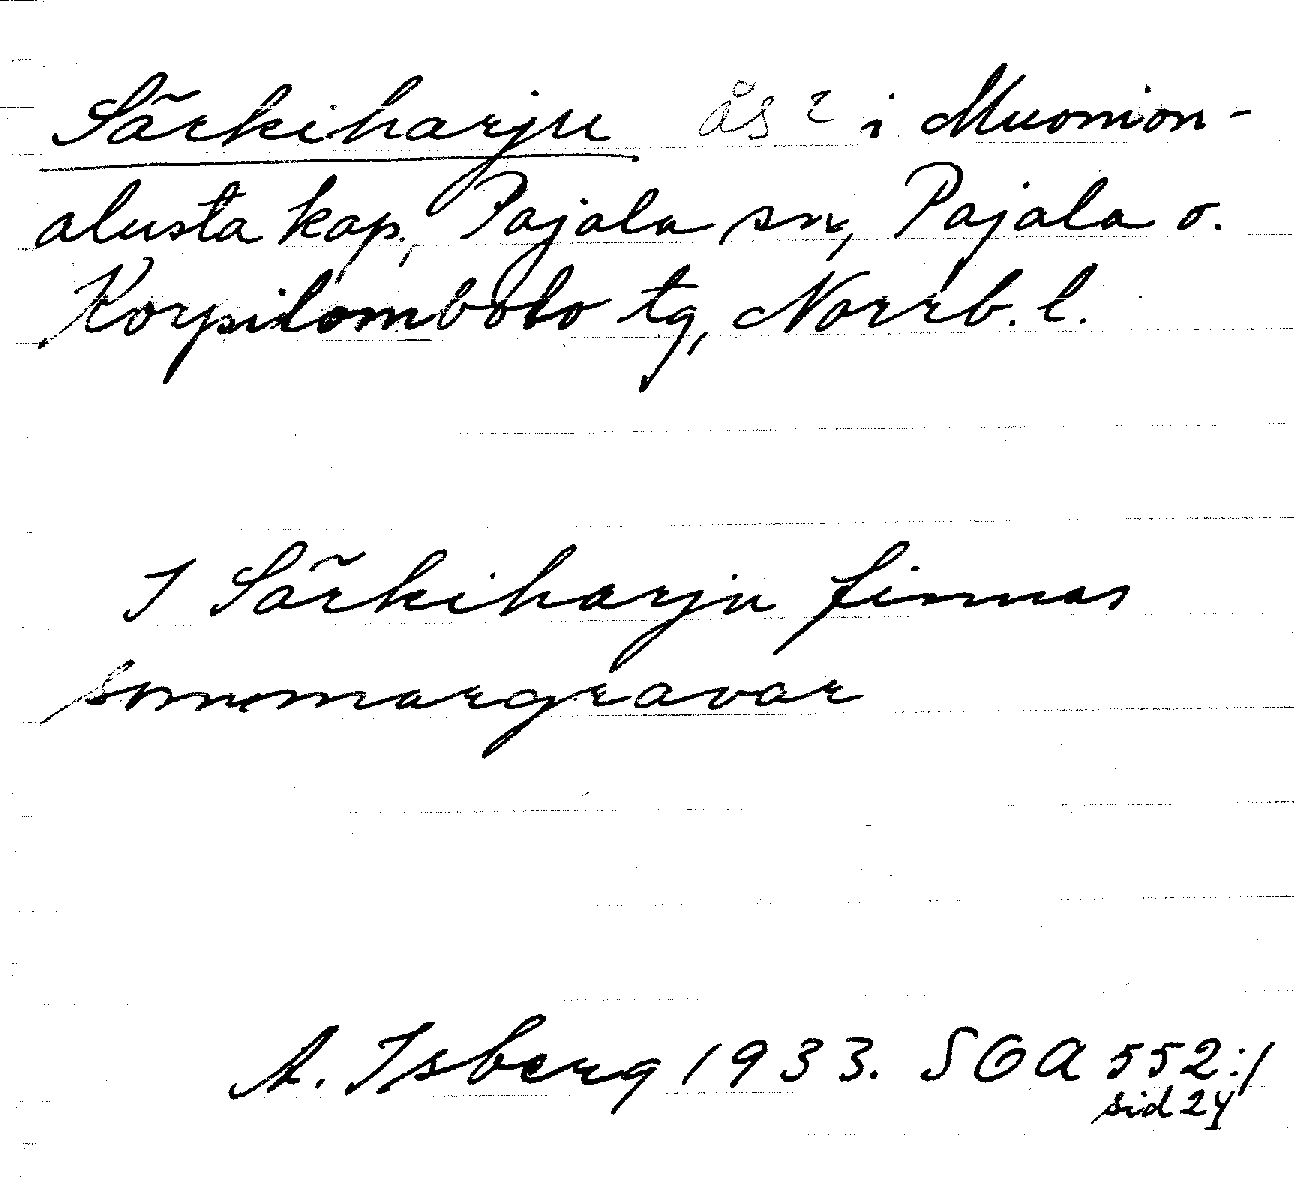 Särkiharju ås? i Muonion-
alusta kap., Pajala sn, Pajala o.
Korpilombolo tg, Norrb. l.
I Särkiharju finnas
sommargravar
A. Isberg 1933. SOA 552:1
sid 24